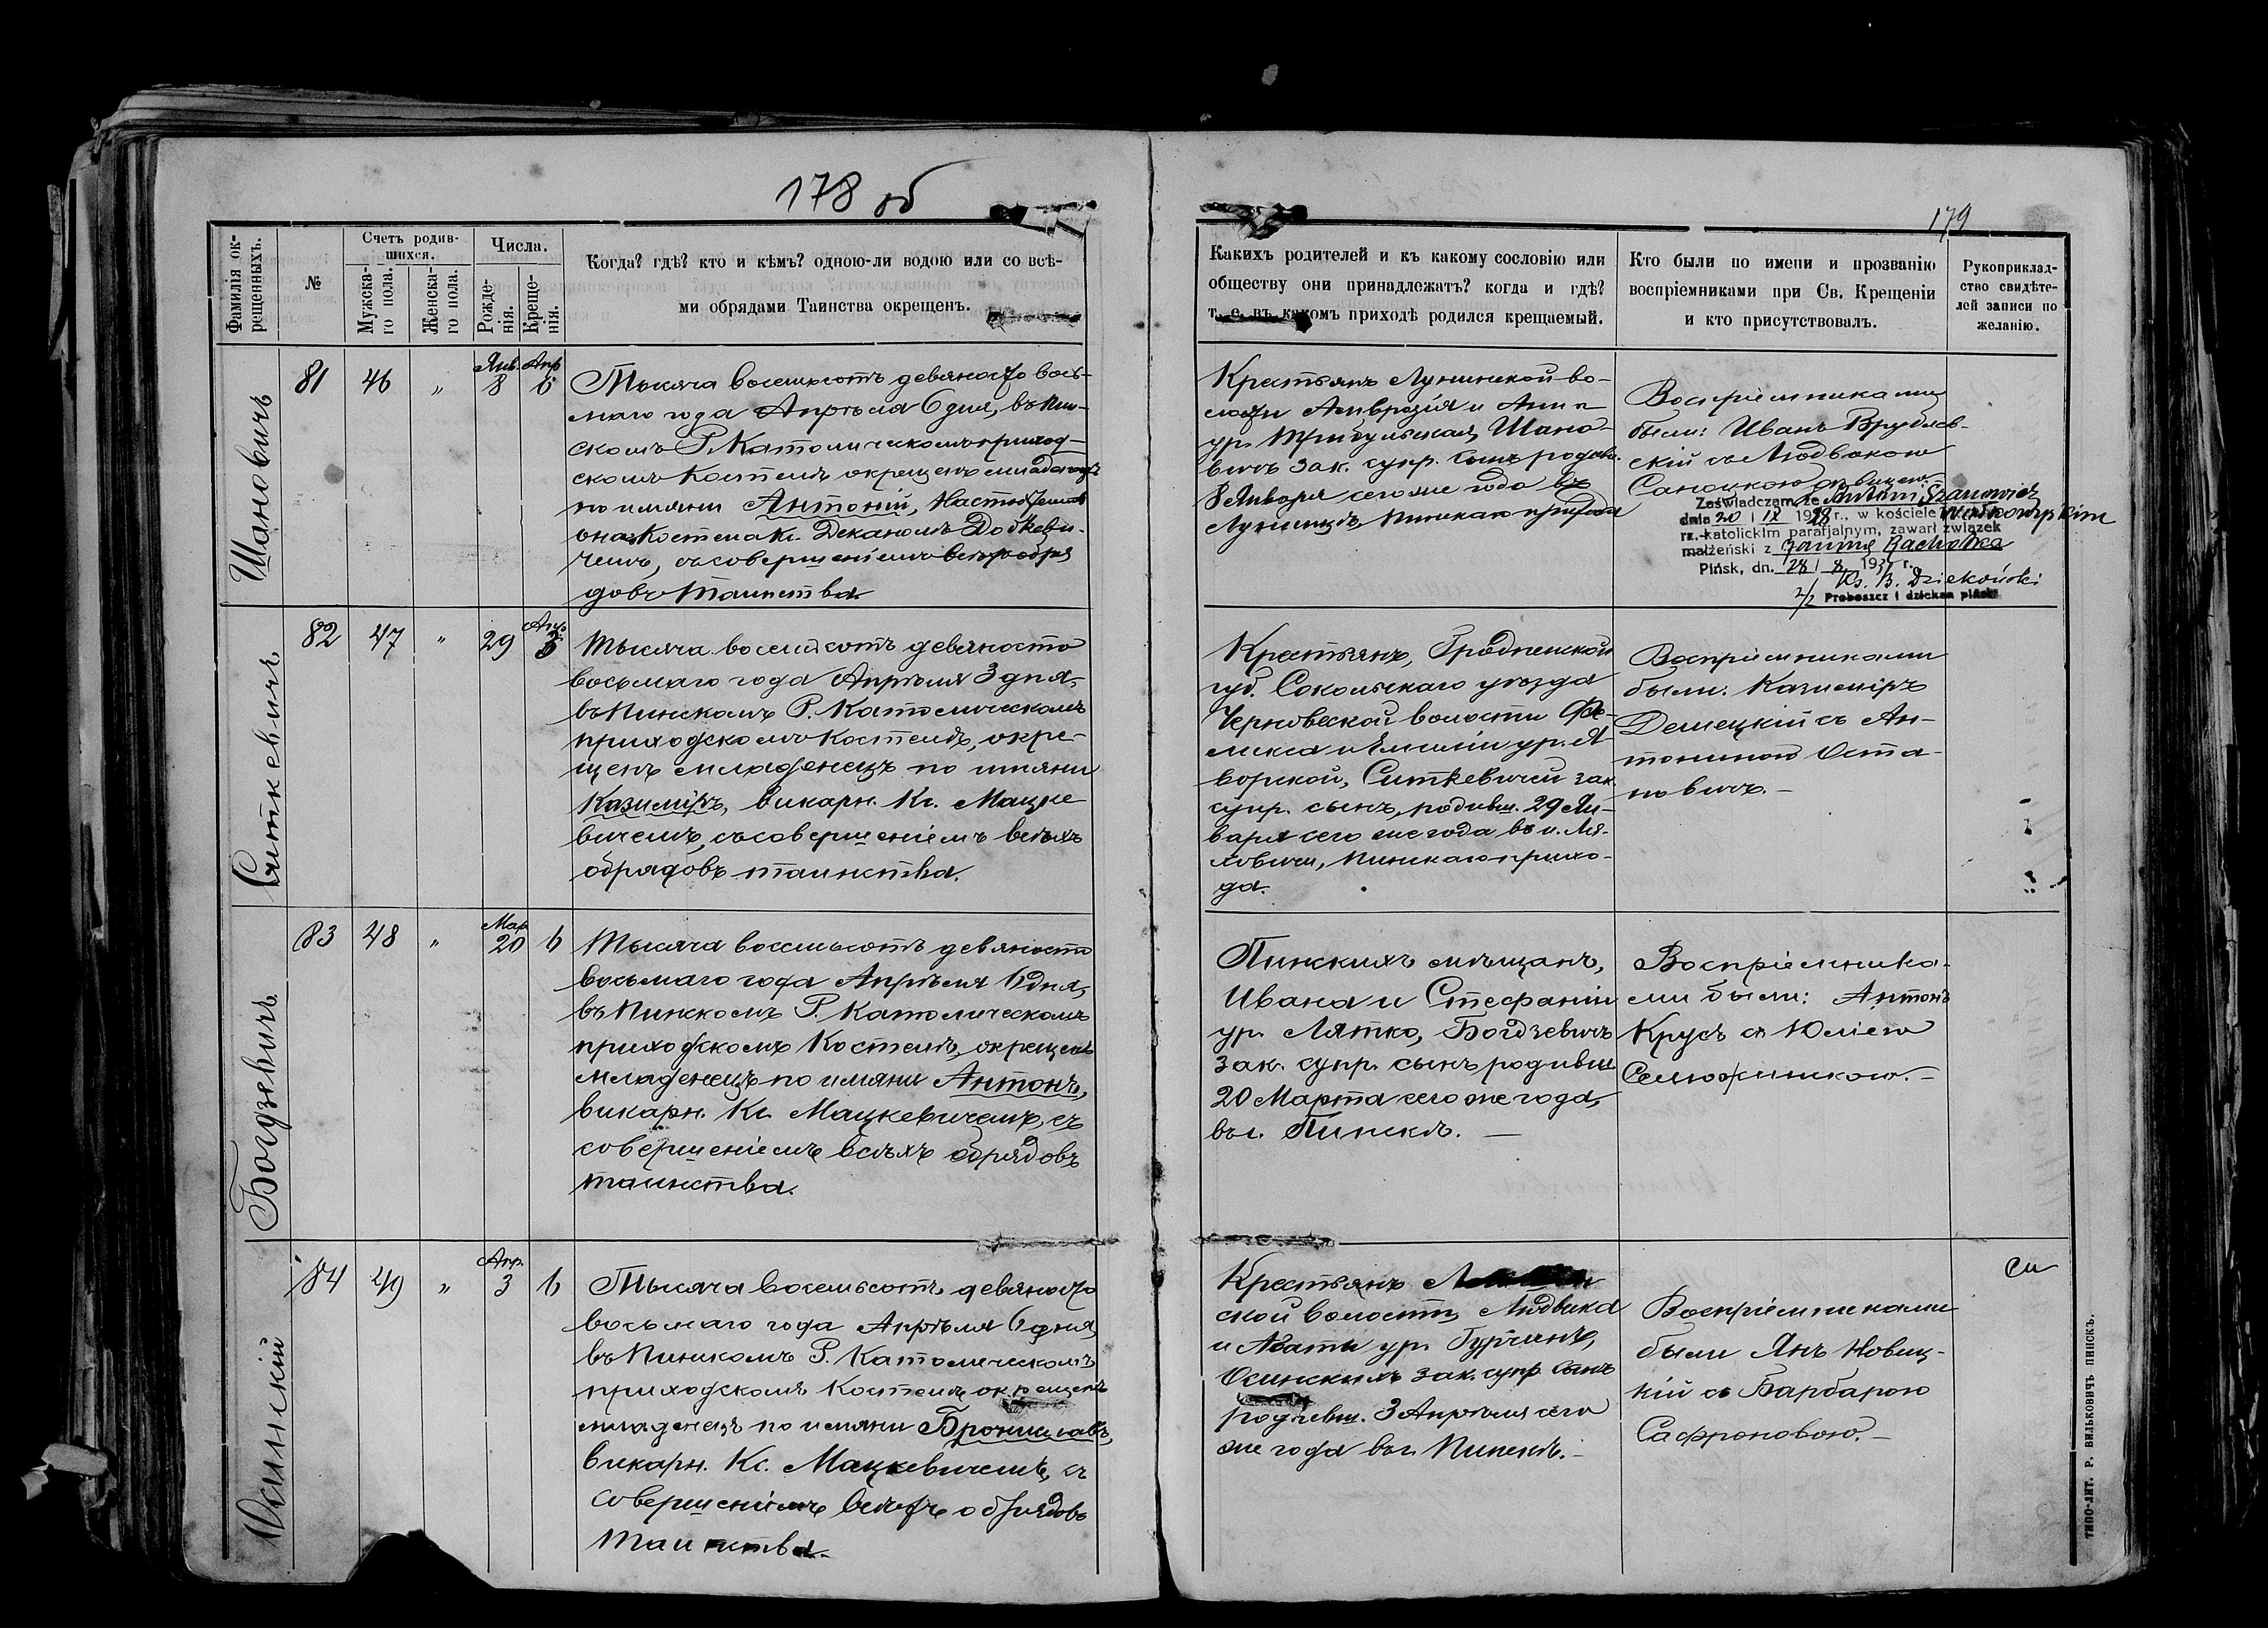 178 об
179
Фамилія ок-
рещенныхъ.
№
Счетъ родив-
шихся.
Мужска-
го пола.
Женска-
го пола.
Числа.
Рожде-
нія.
Креще-
нія.
Когда? гдѣ? кто и кѣмъ? одною-ли водою или со всѣ-
ми обрядами Таинства окрещенъ.
Какихъ родителей и къ какому сословію или
обществу они принадлежатъ? когда и гдѣ?
т. е. въ какомъ приходѣ родился крещаемый.
Кто были по имени и прозванію
воспріемниками при Св. Крещеніи
и кто присутствовалъ.
Рукоприклад-
ство свидѣте-
лей записи по
желанію.
Шановичъ
81 46 „ Янв. 8 Апр 6
Тысяча восемьсотъ девяносто вось-
маго года Апрѣля 6 дня, въ Пин-
скомъ Р. Католическомъ приход-
скомъ Костелѣ окрещенъ младенецъ
по имяни Антоній, Настоятелемъ
онаго Костела Кс. Деканомъ
чемъ, съ совершеніемъ всѣхъ обря
довъ Таинства.
Крестьянъ Лунинской во-
лости Амвросія и Анны
ур. Шано-
вичъ зак. супр. сынъ родив.
8 Января сего же года въ
Пинскаго прихода
Воспріемниками
были: Иванъ Врублев-
скій съ Людвикою
Zaświadczam, że Antoni Szanowicz
dnia 20 / IX 1928 r., w kościele
rz.-katolickim parafjalnym, zawarł związek
małżeński z
Pińsk, dn. 28 / 8 193 r.
Ks. B. Dziekoński
Proboszcz i dziekan piński
Ситкевичъ
82 47 „ 29 Апр. 3
Тысяча восемьсотъ девяносто
восьмаго года Апрѣля 3 дня,
въ Пинскомъ Р. Католическомъ
приходскомъ Костелѣ, окре-
щенъ младенецъ по имяни
Казиміръ, викарн. Кс. Мацке
вичемъ, съ совершеніемъ всѣхъ
обрядовъ таинства.
Крестьянъ, Гродненской
губ. Сокольскаго уѣзда
Черновеской волости Фе-
ликса и Эмиліи ур. Я-
ворской, Ситкевичей зак.
супр. сынъ, родивш. 29 Ян-
варя сего же года въ и. Ля-
ховичи, Пинскаго прихо-
да.
Воспріемниками
были: Казиміръ
Демецкій съ Ан-
тониною Оста-
новичъ. –
Богдзевичъ
83 48 „ Мар 20 6
Тысяча восемьсотъ девяносто
восьмаго года Апрѣля 6 дня,
въ Пинскомъ Р. Католическомъ
приходскомъ Костелѣ, окрещенъ
младенецъ по имяни Антонъ,
викарн. Кс. Мацкевичемъ, съ
совершеніемъ всѣхъ обрядовъ
таинства.
Пинскихъ мѣщанъ,
Ивана и Стефаніи
ур. Лятко, Богдзевичъ
зак. супр. сынъ родивш
20 Марта сего же года,
въ г. Пинскѣ. –
Воспріемника-
ми были: Антонъ
Крусъ съ Юліею
Осинскій
84 49 „ Апр. 3 6
Тысяча восемьсотъ девяносто
восьмаго года Апрѣля 6 дня,
въ Пинскомъ Р. Католическомъ
приходскомъ Костелѣ окрещенъ
младенецъ по имяни Брониславъ,
викарн. Кс. Мацкевичемъ, съ
совершеніемъ всѣхъ обрядовъ
Таинства.
Крестьянъ
ской волости, Людвика
и Агаты ур. Гурчинъ,
Осинскихъ зак. супр. сынъ
родивш. 3 Апрѣля сего
же года въ г. Пинскѣ. –
Воспріемниками
были Янъ Новиц-
кій съ Барбарою
Сафроновою. –
ТИПО-ЛИТ. Р. ВИЛЬКОВИЧЪ ПИНСКЪ.